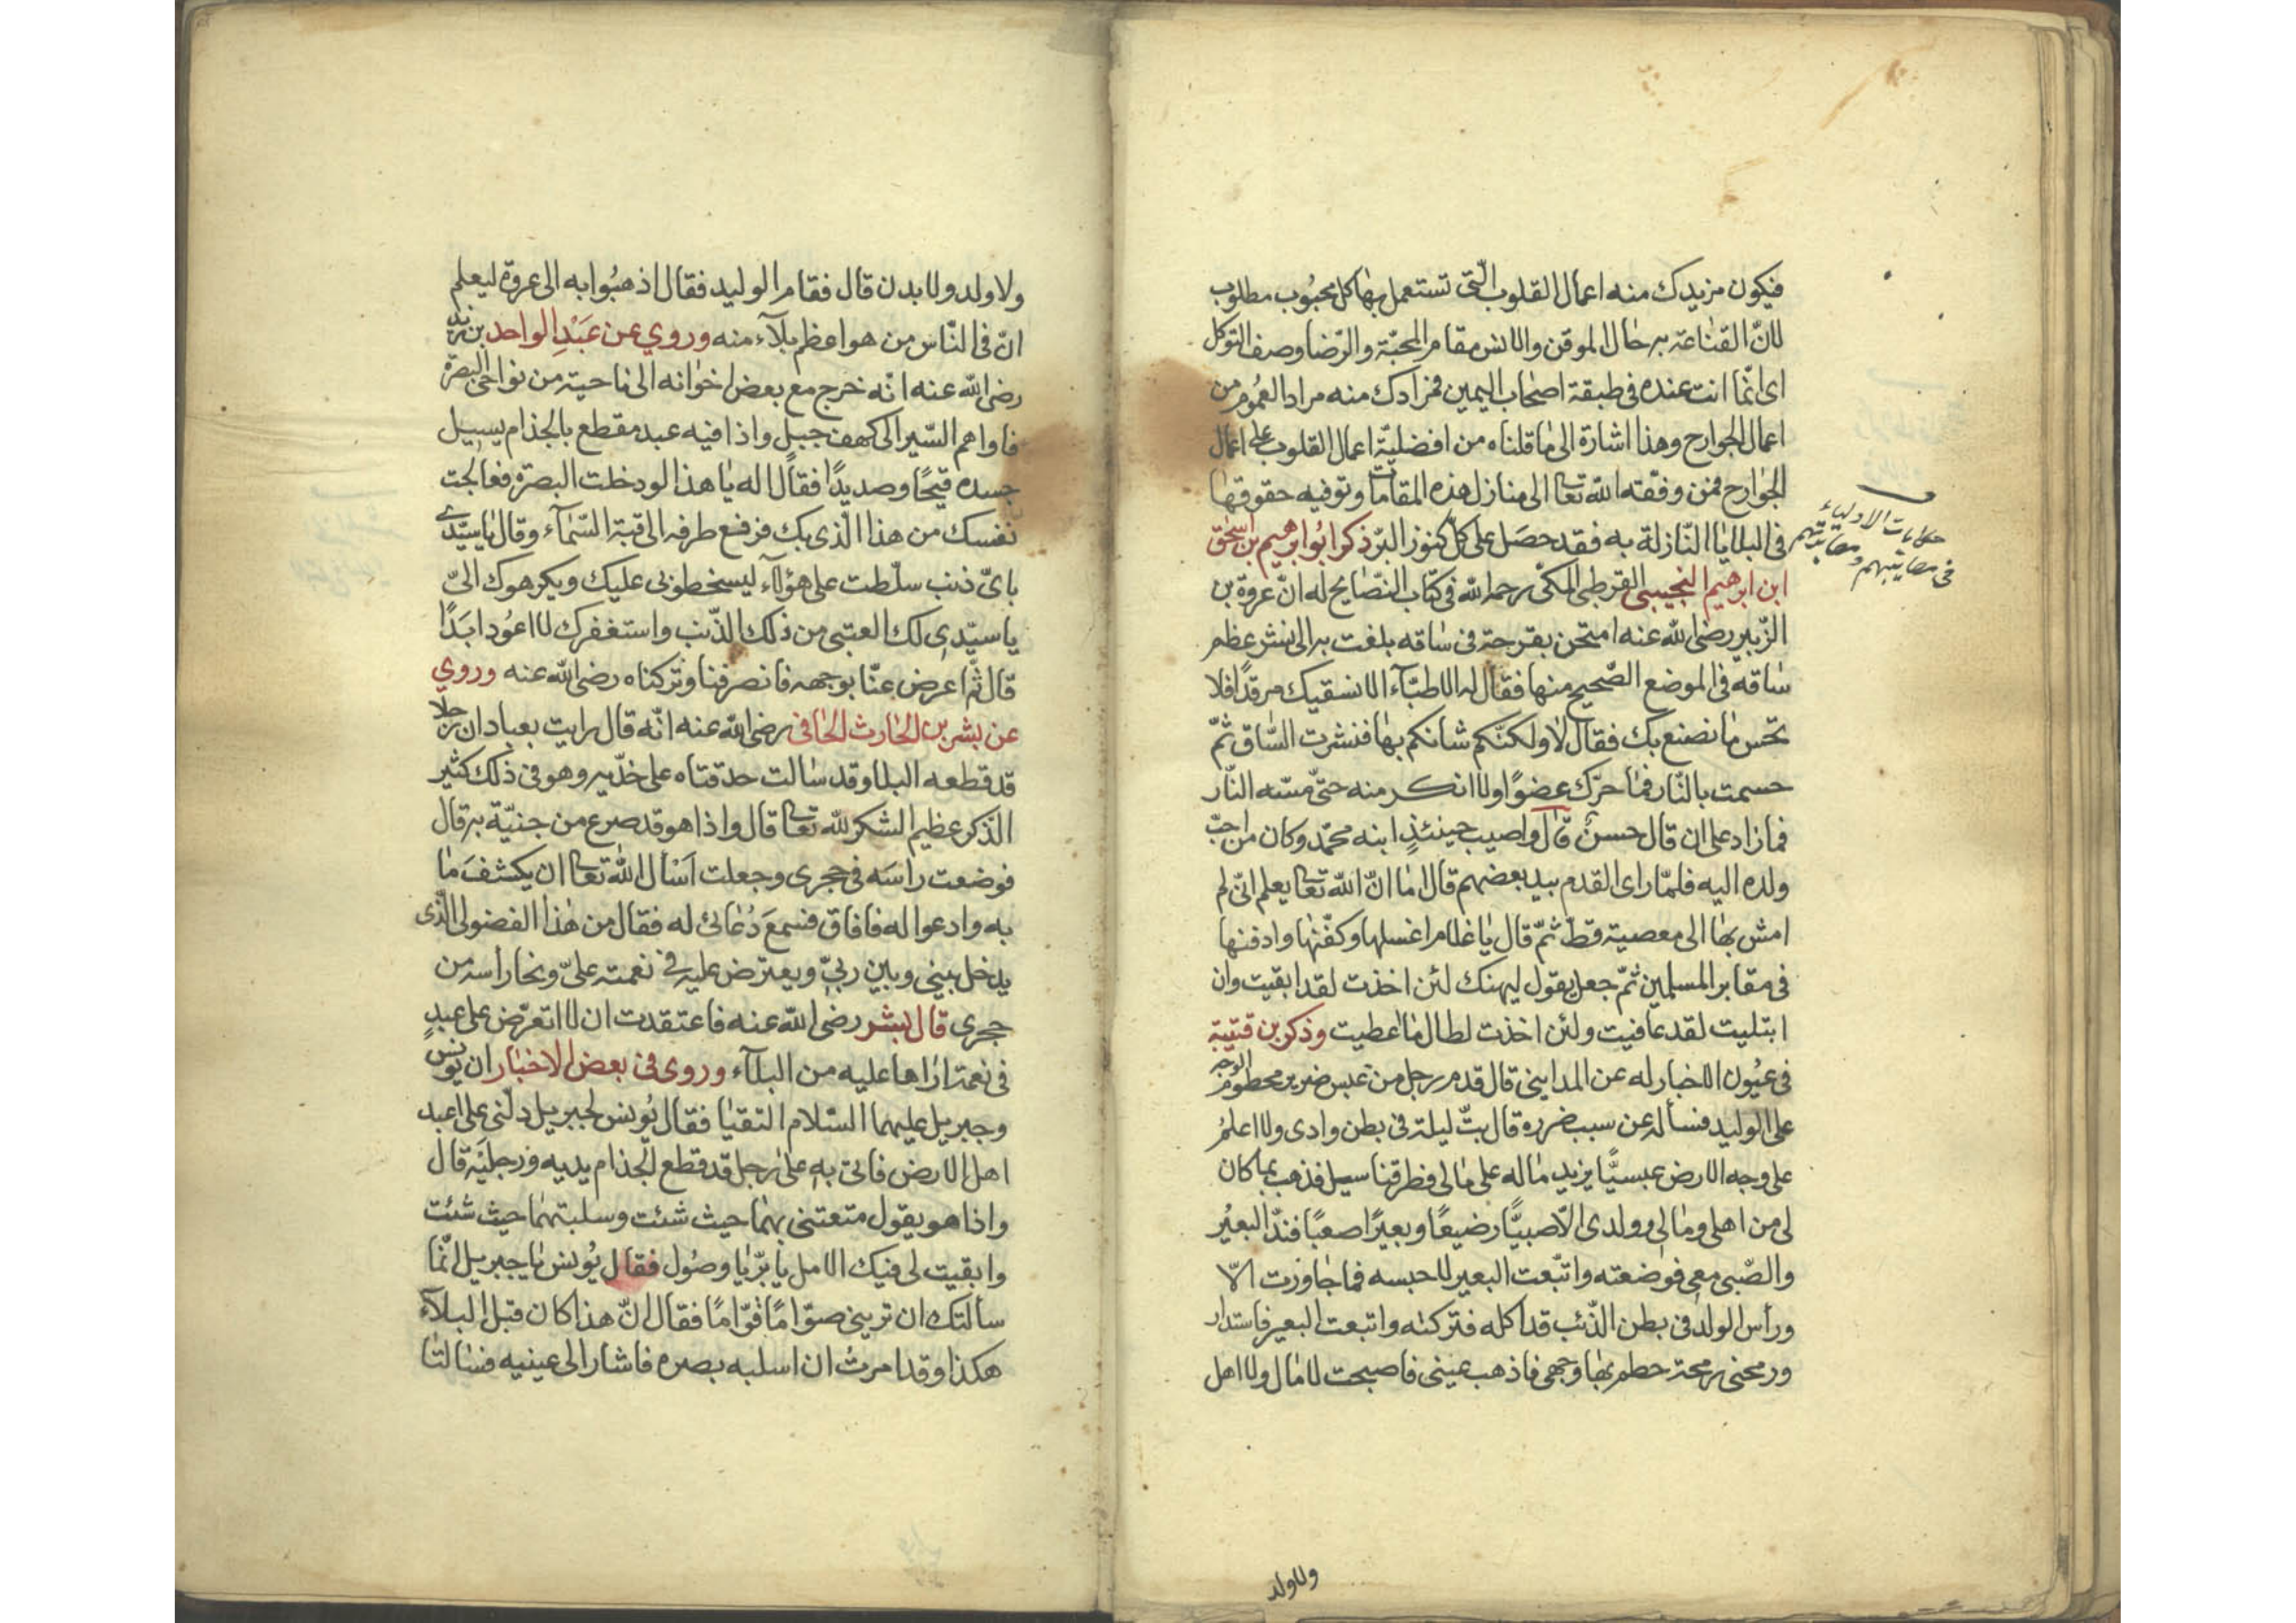 فيكون مزيدك منه اعمال القلوب الّتى تستعمل بها كل محبُوب مطلوب
لانّ القناعة به حال الموقن والانس مقام المحبّة والرّضا وصف التوكل
اى انّما انت عنده فى طبقة اصحاب اليمين فمزادك منه مراد العُموم من
اعمال الجوارح وهذا اشارة الى ما قلناه من افضليّة اعمال القلوب على اعمال
الجوارح فمن وفقه الله تعا الى منازل هذه المقامات وتوفيه حقوقها
فى البلايا النّازلة به فقد حصَل على كلّ كنوز البرّ ذكر ابُو ابرهيم بن اسحٰق
حكايات الاولياء
فى مصايبهم
ابن ابرهيم التجيبى القرطبى المكى رحمه الله فى كتاب النّصايح له انّ عروة بن
الزّبير رضى الله عنه امتحن بقرحة فى ساقه بلغت به الى نشر عظم
ساقه فى الموضع الصّحيح منها فقال له الاطبّآء الا نسقيك مرقدًا فلا
تحّس ما نصنع بك فقال لا ولكنّكم شانكم بها فنشرت السّاق ثمّ
حسمت بالنّار فما حرّك عضوًا ولا انكر منه حتّى مسّه النّار
فما زاد على ان قال حسن قال واصيب حينئذٍ ابنه محمّد وكان من احبّ
ولده اليه فلمّا راى القدم بيد بعضهم قال اما انّ الله تعا يعلم انّى لم
امش بها الى معصية قطّ ثمّ قال يا غلام اغسلها وكفّنها وادفنها
فى مقابر المسلمين ثمّ جعل يقول ليهنك لئن اخذت لقد ابقيت وان
ابتليت لقد عافيت ولئن اخذت لطال ما اعطيت وذكر بن قتيبة
فى عيُون الاخبار له عن المداينى قال قدم رجل من عبس ضرير محطوم الوجه
على الوليد فسأله عن سبب ضرره قال بتّ ليلة فى بطن وادى ولا اعلمُ
على وجه الارض عبسيًّا يزيد ماله على مالى فطرقنا سيل فذهب بما كان
لى من اهلى ومالى وولدى الّا صبيًّا رضيعًا وبعيرًا صعبًا فندّ البعيُر
والصّبى معى فوضعته واتّبعت البعير لاحبسه فما جاوزت الّا
ورأس الولد فى بطن الذّئب قد اكله فتركته واتبعت البعير فاستدار
ورمحنى رمحة حطم بها وجهى فاذهب عينى فاصبحت لا مال ولا اهل
ولا ولد
ولا ولد ولا بدن قال فقام الوليد فقال اذهبُوا به الى عروة ليعلم
انّ فى النّاس من هو اعظم بلآء منه وروي عن عَبْدِ الواحد بن زيد
رضى الله عنه انّه خرج مع بعض اخوانه الى ناحية من نواحى البصرة
فاواهم السّير الى كهف جبل واذا فيه عبد مقطع بالجذام يسيل
جسده قيحًا وصديدًا فقال له يا هذا لو دخلت البصرة فعالجت
نفسك من هذا الّذى بك فرفع طرفه الى قبة السّمآء وقال يا سيّدى
باىّ ذنب سلّطت على هؤلآء ليسخطونى عليك ويكرهوك الىّ
يا سيّدى لك العتبى من ذلك الذّنب واستغفرك لا اعُود ابَدًا
قال ثمّ اعرض عنّا بوجهه فانصرفنا وتركناه رضى الله عنه وروي
عن بشر بن الحارث الحافى رضى الله عنه انّه قال رايت بعبادان رجلا
قد قطعه البلا وقد سالت حدقتاه على خدّيه وهو فى ذلك كثير
الذّكر عظيم الشكر لله تعا قال واذا هو قد صرع من جنيّة به قال
فوضعت راسَه فى حجرى وجعلت اسْأل الله تعا ان يكشفَ ما
به وادعوا له فافاق فسمعَ دُعائى له فقال من هذا الفضولى الّذى
يدخل بينى وبين ربىّ ويعترض عليه فى نعمته علىّ ونحا راسه من
حجرى قال بشر رضى الله عنه فاعتقدت ان لا اتعرّض على عبدٍ
فى نعمة اراها عليه من البلآء وروى فى بعض الاخبار ان يونس
وجبريل عليهما السّلام التقيا فقال يُونس لجبريل دلّنى على اعبد
اهل الارض فاتى به على رجل قد قطع الجذام يديه ورجليَه قال
واذا هو يقول متعتنى بهما حيث شئت وسلبتهما حيث شئت
وابقيت لى فيك الامل يا برّ يا وصُول فقال يُونس يا جبريل انّما
سألتك ان ترينى صوّامًا قوّامًا فقال انّ هذا كان قبل البلآء
هكذا وقد امرتُ ان اسلبه بصره فاشار الى عينيه فسالتا